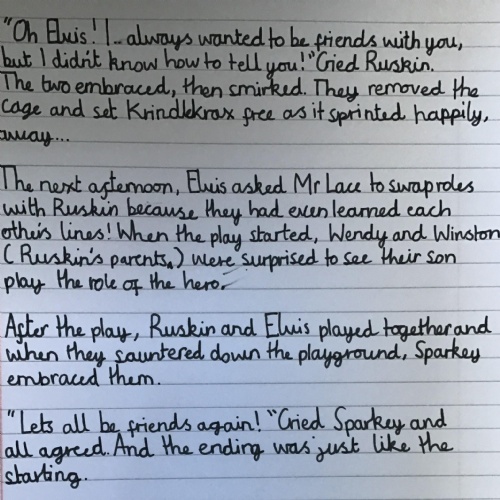 "Oh Elvis! I... always wanted to be friends with you,
but I didn't know how to tell you!" Cried Ruskin.
The two embraced, then smirked. They removed the
cage and set Krindlekrax free as it sprinted happily,
away...
The next afternoon, Elvis asked Mr Lace to swap roles
with Ruskin because they had even learned each
other's lines! When the play started, Wendy and Winston
(Ruskin's parents,) were surprised to see their son
play the role of the hero.
After the play, Ruskin and Elvis played together and
when they sauntered down the playground, Sparkey
embraced them.
"Lets all be friends again! "Cried Sparkey and
all agreed. And the ending was just like the
starting.